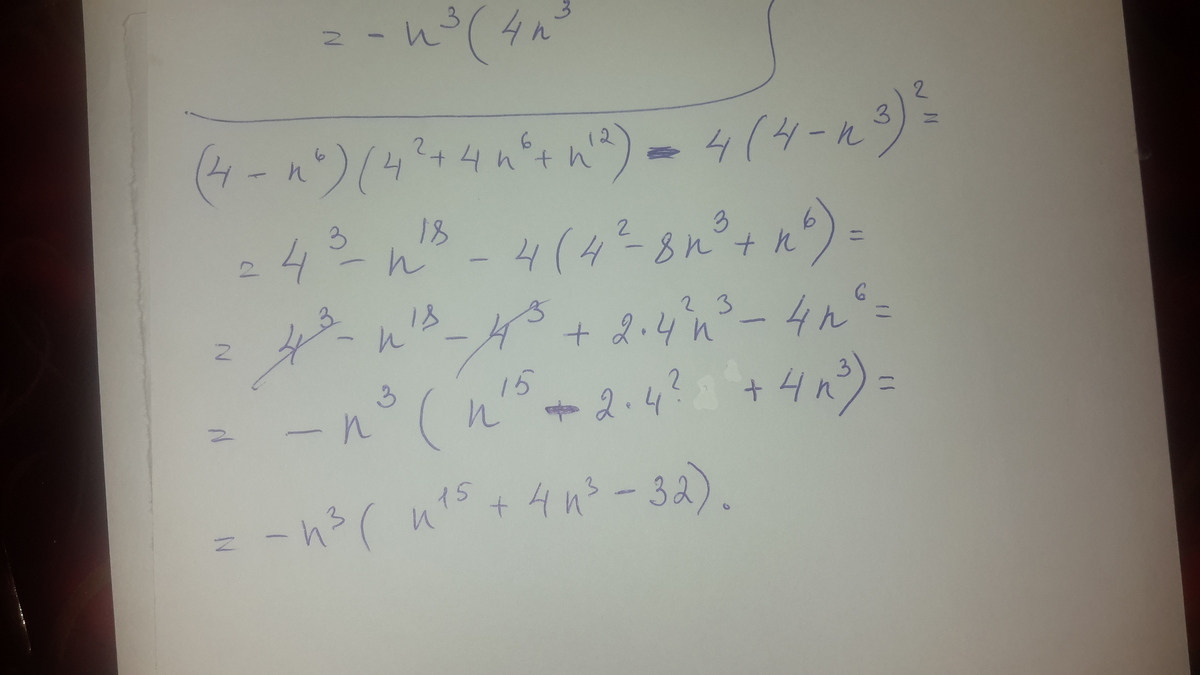 = - n³ ( 4n³
(4 - n⁶)(4² + 4n⁶ + n¹²) - 4(4 - n³)² =
= 4³ - n¹⁸ - 4(4² - 8n³ + n⁶) =
= 4³ - n¹⁸ - 4³ + 2·4²n³ - 4n⁶ =
= - n³ ( n¹⁵ - 2·4² + 4n³) =
= - n³ ( n¹⁵ + 4n³ - 32).